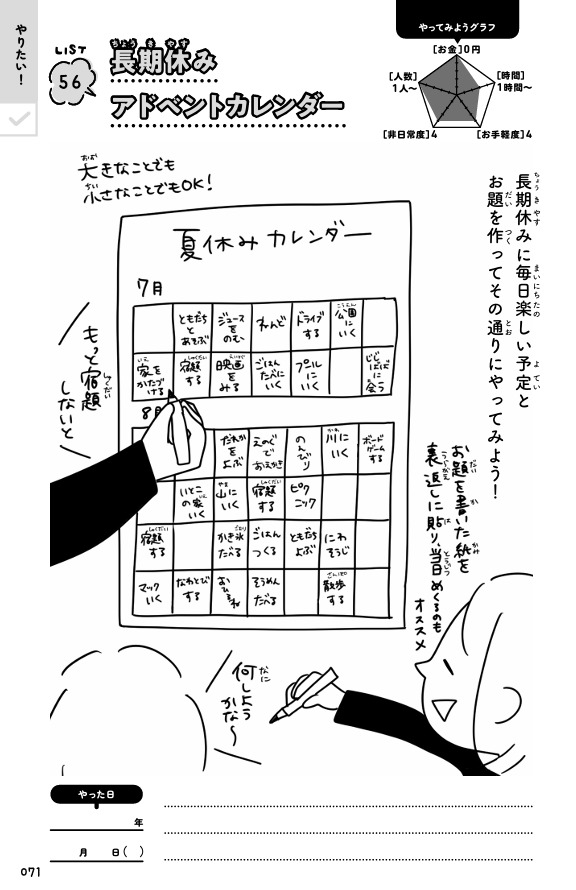 やりたい！
LIST
56
長期休み
アドベントカレンダー
やってみようグラフ
[お金]0円
[人数]
1人〜
[時間]
1時間〜
[非日常度]4
[お手軽度]4
長期休みに毎日楽しい予定と
お題を作ってその通りにやってみよう！
大きなことでも
小さなことでもOK！
夏休みカレンダー
7月
ともだちとあそぶ
ジュースをのむ
ねんど
ドライブする
公園にいく
家をかたづける
宿題する
映画をみる
ごはんたべにいく
プールにいく
じじばばに会う
8月
だれかをよぶ
えのぐでおえかき
のんびり
川にいく
ボードゲームする
いとこの家いく
山にいく
宿題する
ピクニック
宿題する
かき氷たべる
ごはんつくる
ともだちよぶ
にわそうじ
マックいく
なわとびする
おひるね
そうめんたべる
散歩する
もっと宿題
しないと
お題を書いた紙を
裏返しに貼り、当日めくるのも
オススメ
何しよう
かな〜
やった日
年
月 日( )
071